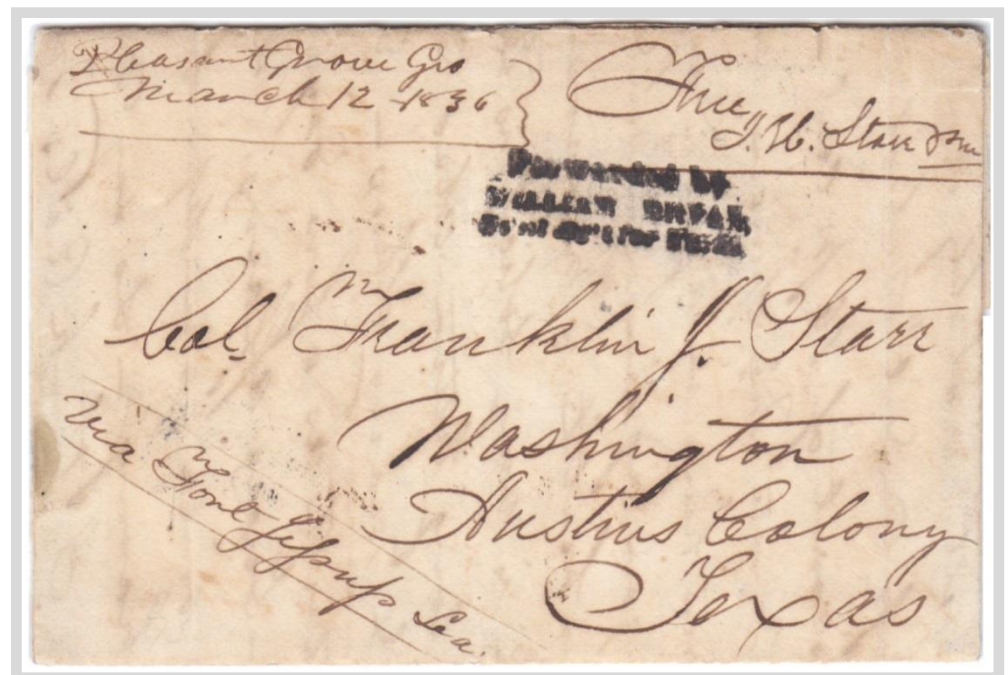 Pleasant Grove Geo
March 12 1836
Free
J. H. Starr pm
Forwarded by
WILLIAM BRYAN,
Gen'l Ag't for Texas
Col. Franklin J. Starr
Washington
Austins Colony
Texas
Via Fort Jessup Lea.